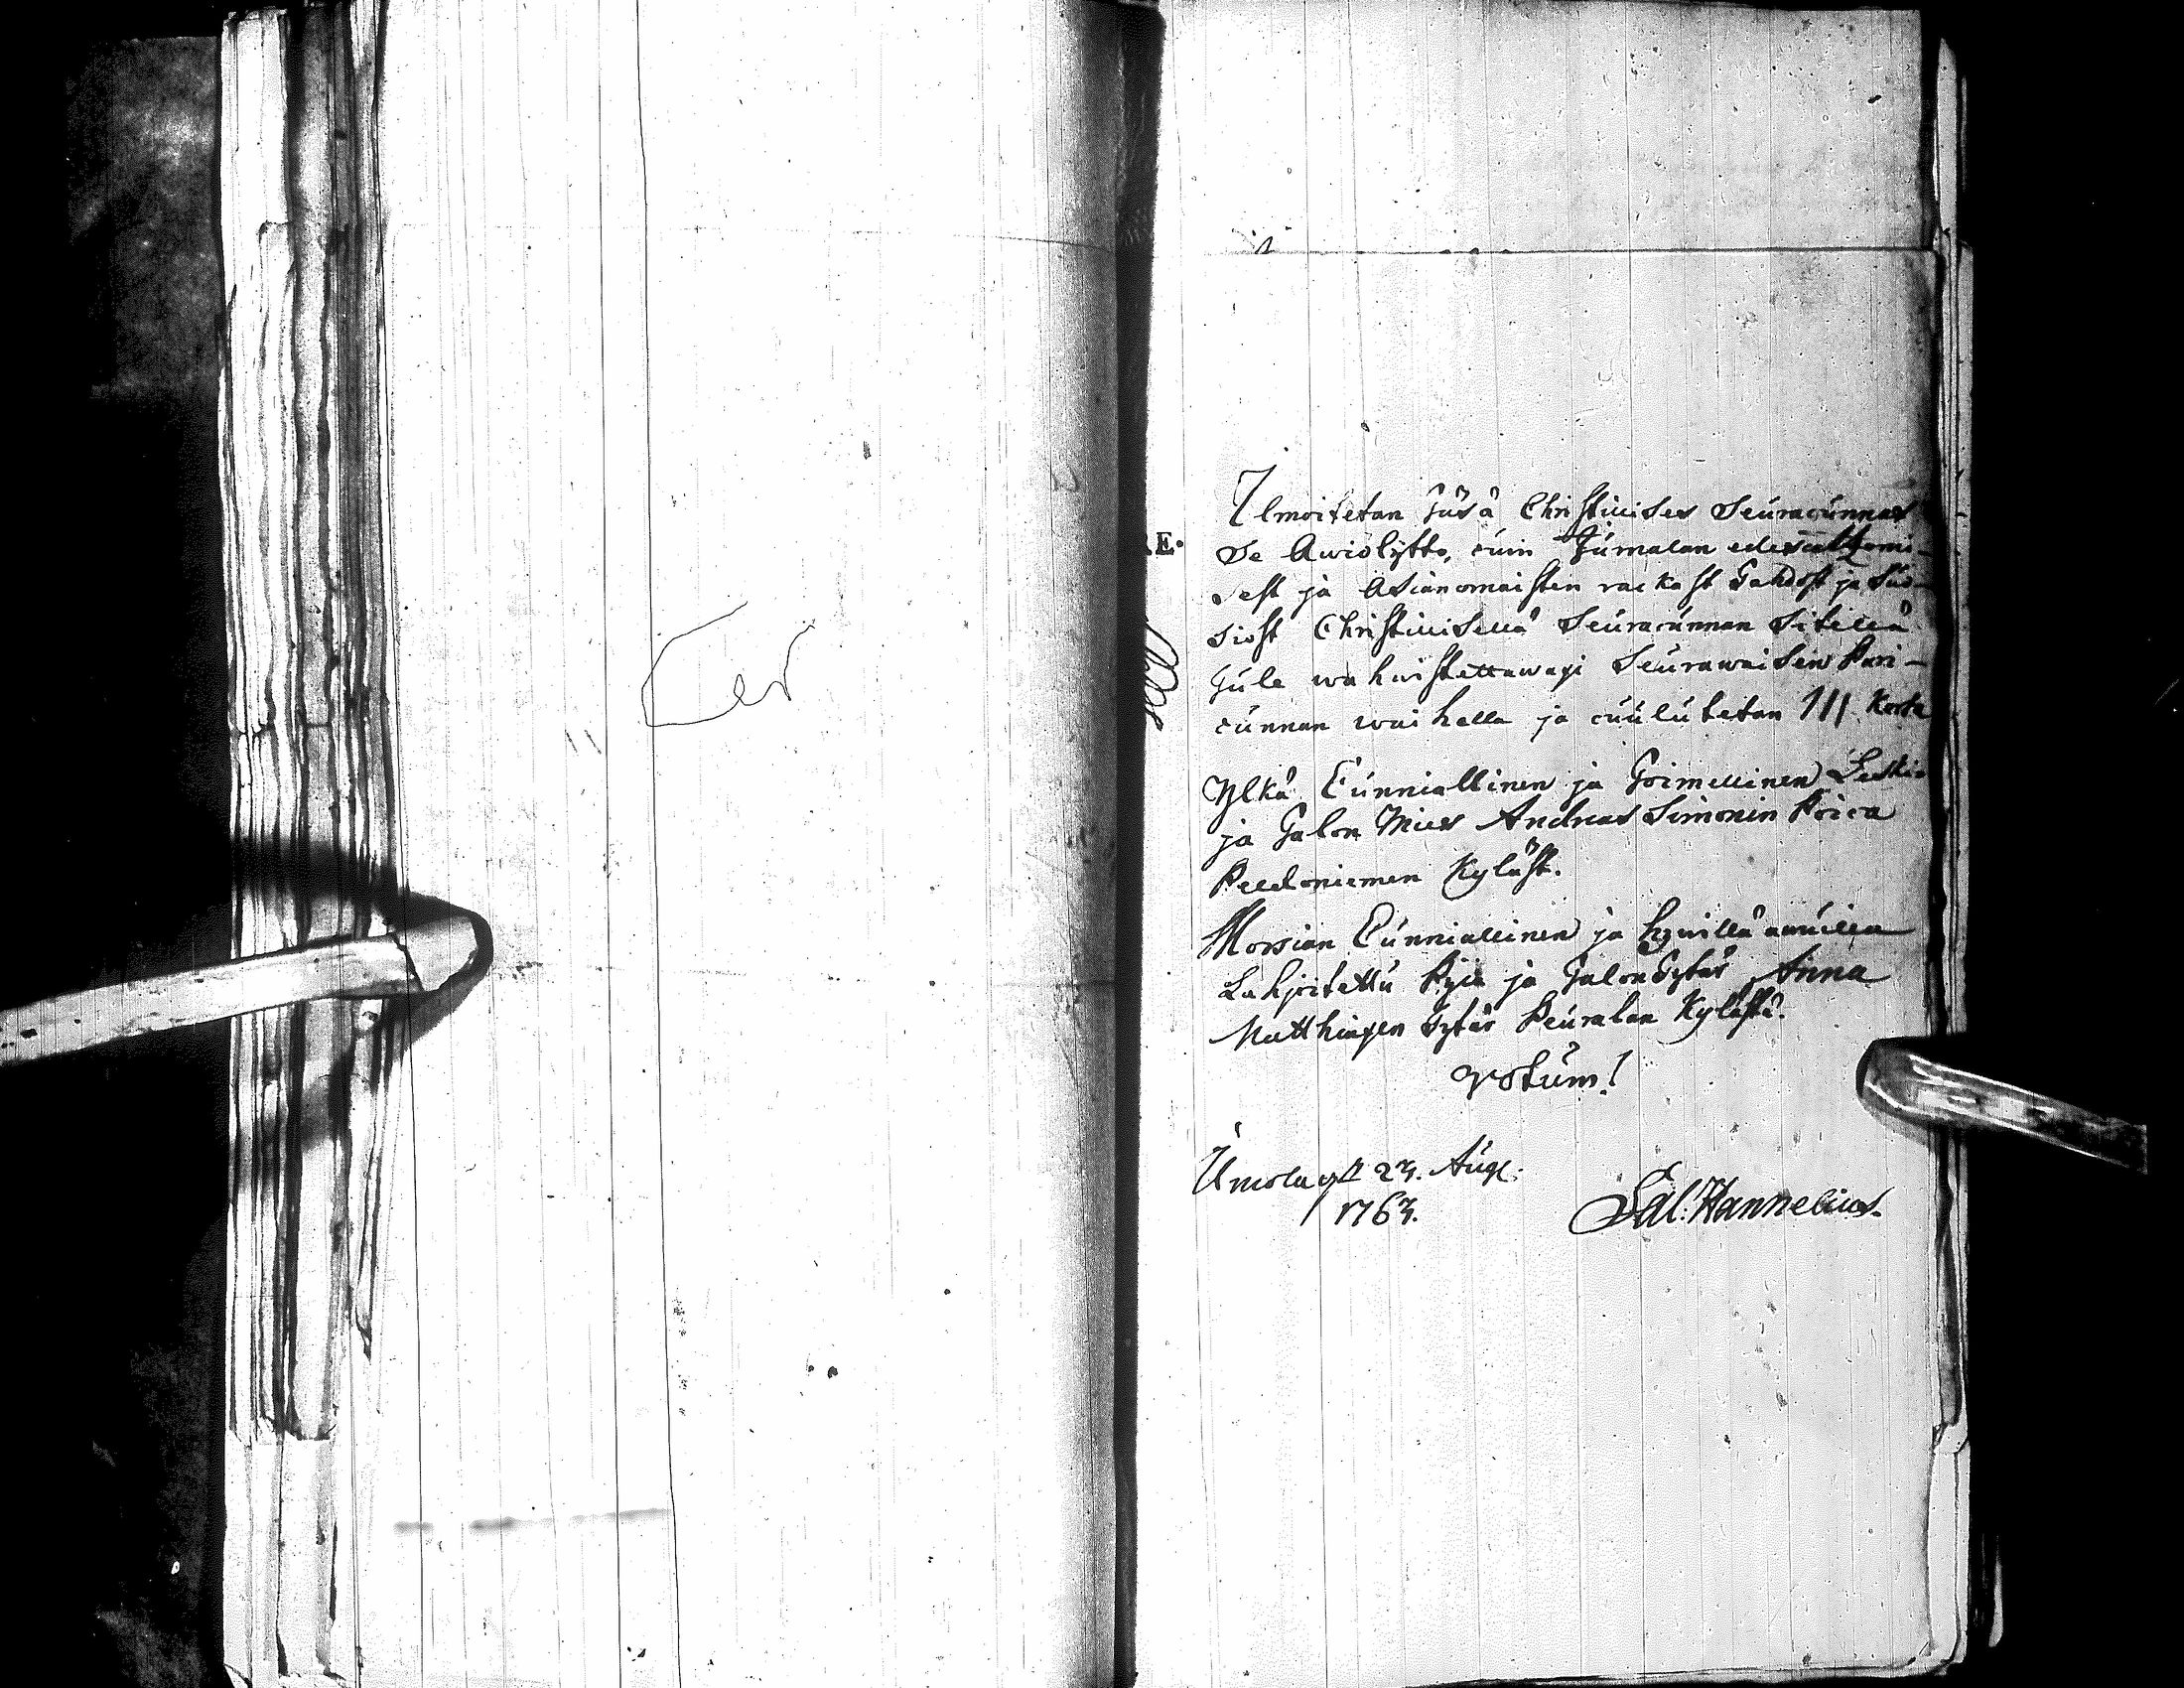 Ilmoitetan Täsä Christillises Seuracunnas
se Awiokytto, cuin Jumalan edescatzomi-
sest ja Asianomaisten rackast Tahdost ja Suo-
siost Christillisellä Seuracunnan Sitellä
Tule wahwistettawaxi Seurawaisen Pari-
cunnan waihella ja cuulutetan III. Kerta
Ylkä Cunniallinen ja Toimellinen Leski-
ja Talon Mies Andreas Simonin Poica
Peldoniemen Kyläst.
Morsian Cunniallinen ja hywillä awuilla
Lahjoitettu Pyia ja Talon Tytär Anna
Matthiaxen Tytär Peuralan Kylästä.
Votum!
Umola 23. Aug:
1763.
Sal: Hannelius.